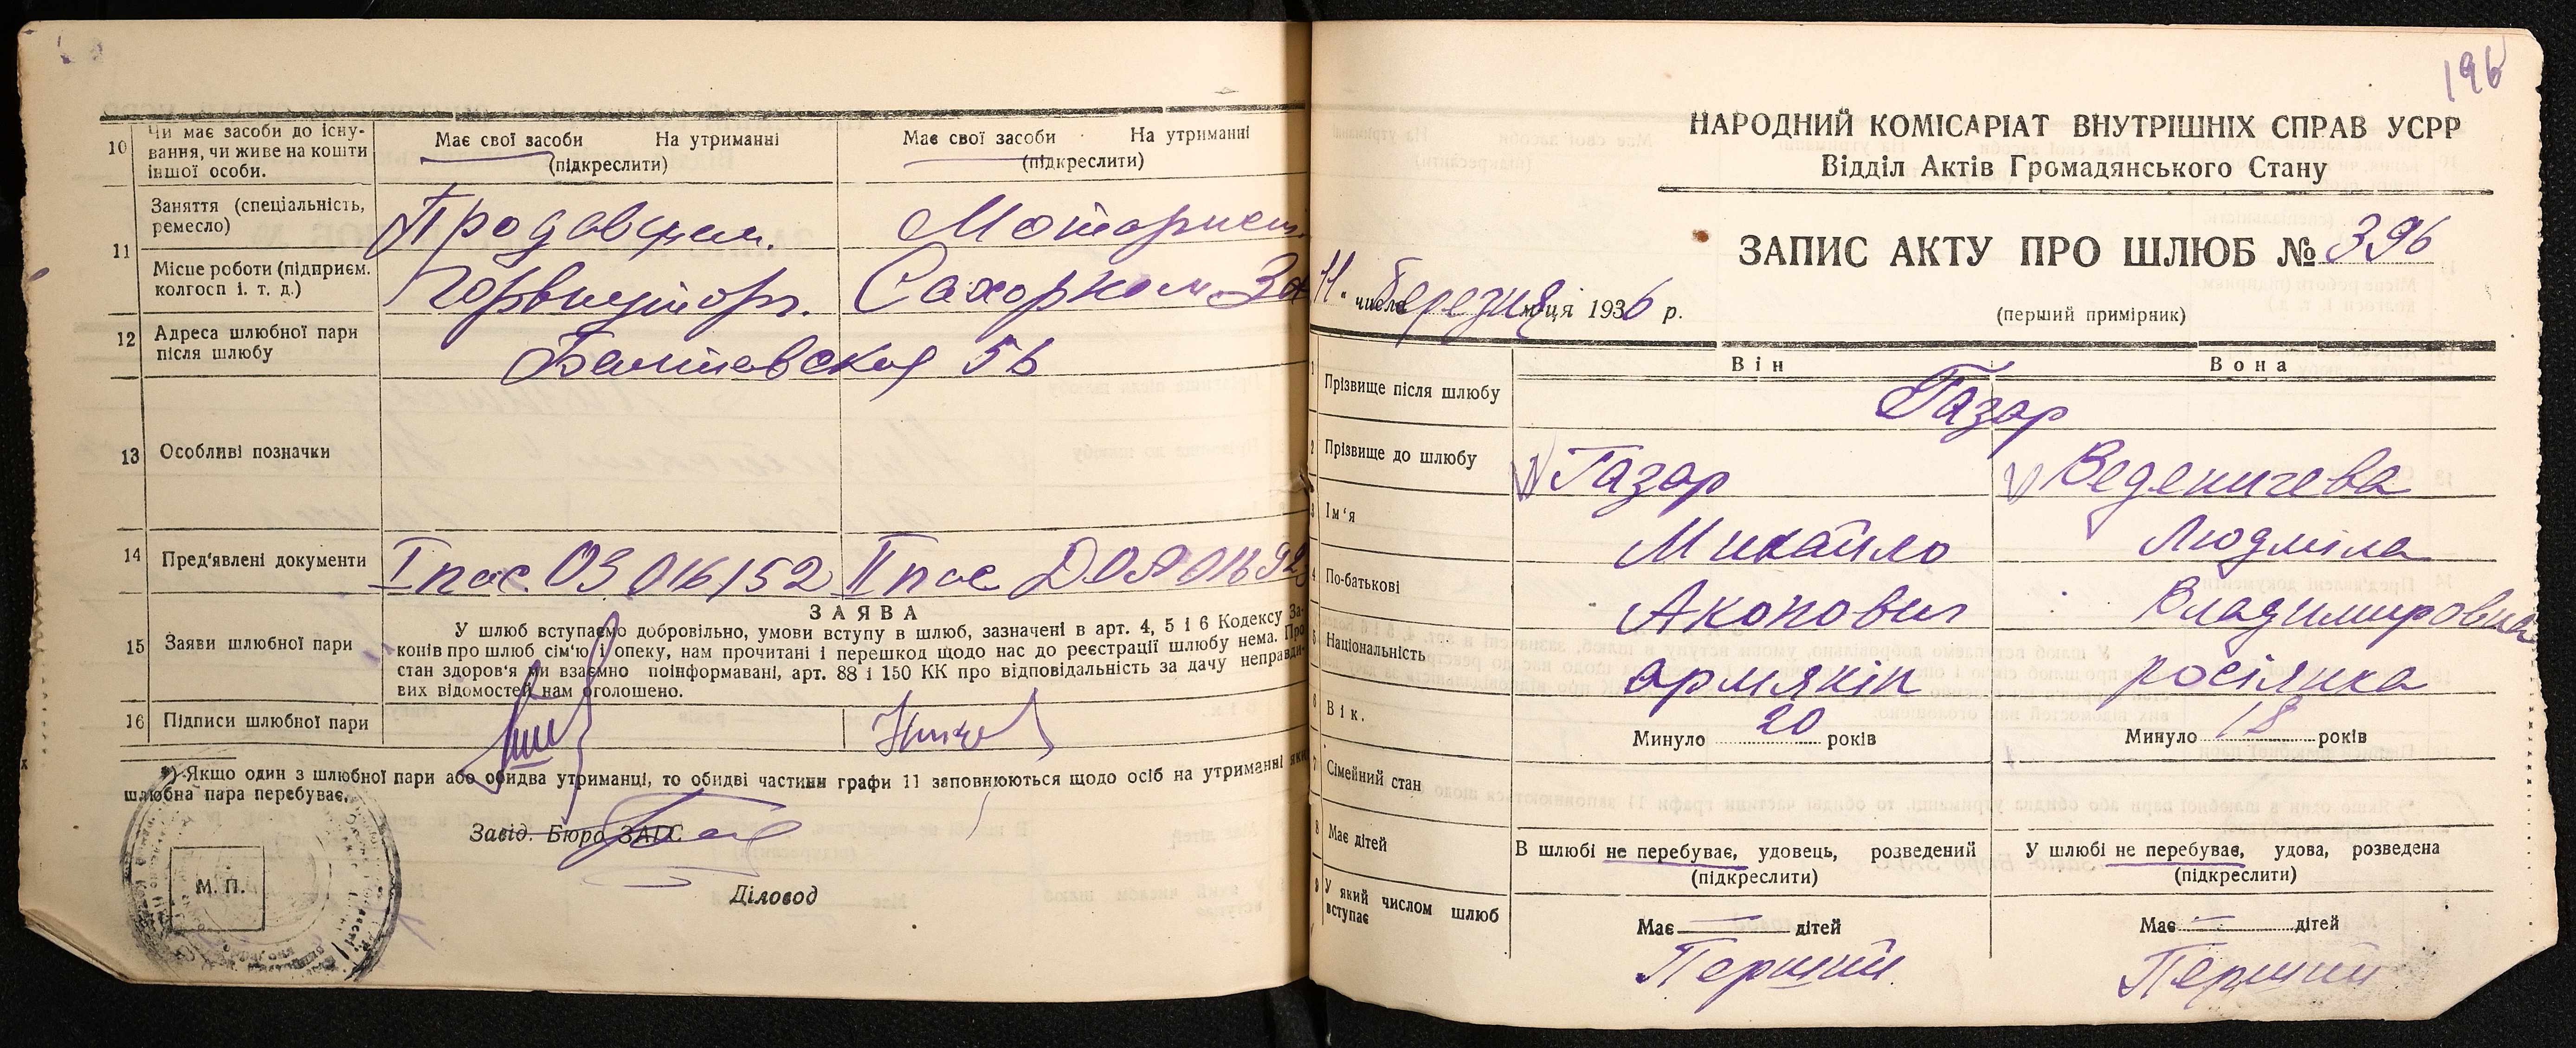 10 Чи має засоби до існу-
вання, чи живе на кошти
іншої особи.
Має свої засоби На утриманні
(підкреслити)
Має свої засоби На утриманні
(підкреслити)
11 Заняття (спеціальність,
ремесло)
Продавцем. Моторист
Місце роботи (підприєм.
колгосп і. т. д.)
12 Адреса шлюбної пари
після шлюбу
Балтовская 56
13 Особливі позначки
14 Пред'явлені документи
I пас ОЗ 016152 II пас
15 Заяви шлюбної пари
ЗАЯВА
У шлюб вступаємо добровільно, умови вступу в шлюб, зазначені в арт. 4, 5 і 6 Кодексу За-
конів про шлюб сім'ю і опеку, нам прочитані і перешкод щодо нас до реєстрації шлюбу нема. Про
стан здоров'я ми взаємно поінформавані, арт. 88 і 150 КК про відповідальність за дачу неправди-
вих відомостей нам оголошено.
16 Підписи шлюбної пари
*) Якщо один з шлюбної пари або обидва утриманці, то обидві частини графи 11 заповнюються щодо осіб на утриманні яких
шлюбна пара перебуває.
Завід. Бюро ЗАГС
Діловод
М. П.
196
НАРОДНИЙ КОМІСАРІАТ ВНУТРІШНІХ СПРАВ УСРР
Відділ Актів Громадянського Стану
ЗАПИС АКТУ ПРО ШЛЮБ № 396
11 числа березня м-ця 1936 р.
(перший примірник)
Він Вона
1 Прізвище після шлюбу
Газар
2 Прізвище до шлюбу
Газар Веденичева
3 Ім'я
Михайло Людміла
4 По-батькові
Акопович Владимировна
5 Національність
армякін росіянка
6 Вік.
Минуло 20 років Минуло 18 років
7 Сімейний стан
В шлюбі не перебуває, удовець, розведений
(підкреслити)
У шлюбі не перебуває, удова, розведена
(підкреслити)
8 Має дітей
Має — дітей Має — дітей
9 У який числом шлюб
вступає
Перший Перший